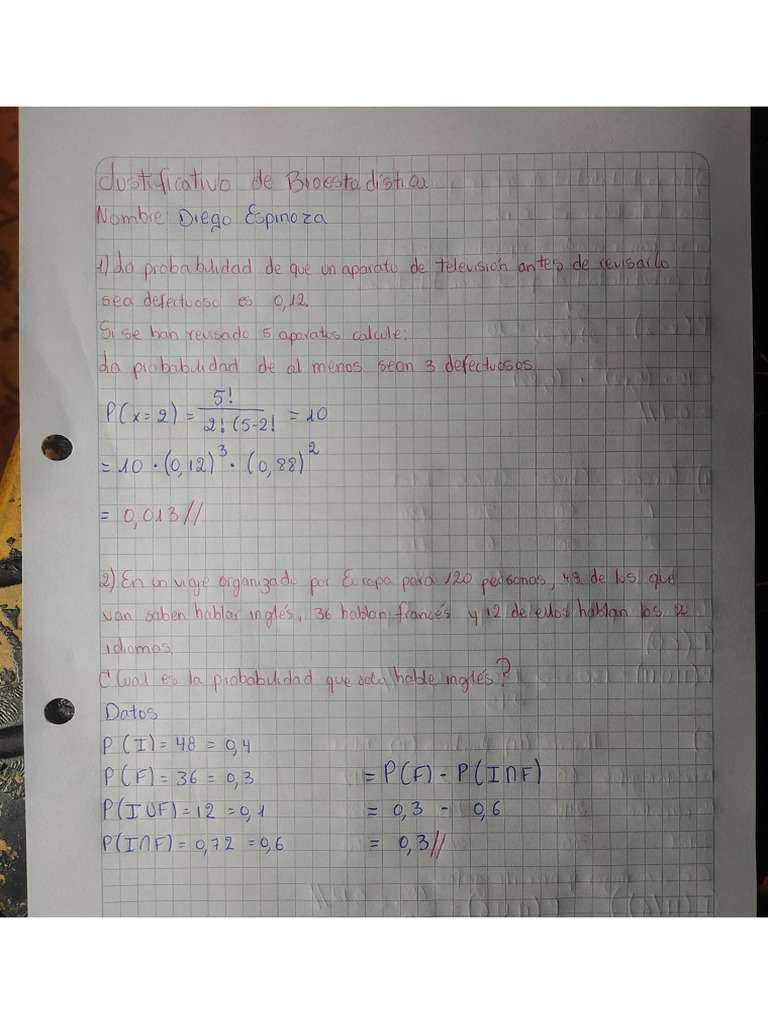 Justificativo de Bioestadística
Nombre: Diego Espinoza
1) La probabilidad de que un aparato de televisión antes de revisarlo
sea defectuoso es 0,12.
Si se han revisado 5 aparatos calcule:
La probabilidad de al menos sean 3 defectuosos
P(x=2) = 5! / 2! (5-2! = 10
= 10 · (0,12)³ · (0,88)²
= 0,013//
2) En un viaje organizado por Europa para 120 personas, 48 de los que
van saben hablar inglés, 36 hablan francés y 12 de ellos hablan los 2
idiomas.
¿Cual es la probabilidad que solo hable inglés?
Datos
P(I) = 48 = 0,4
P(F) = 36 = 0,3 = P(F) - P(I∩F)
P(I∪F) = 12 = 0,1 = 0,3 - 0,6
P(I∩F) = 0,72 = 0,6 = 0,3//